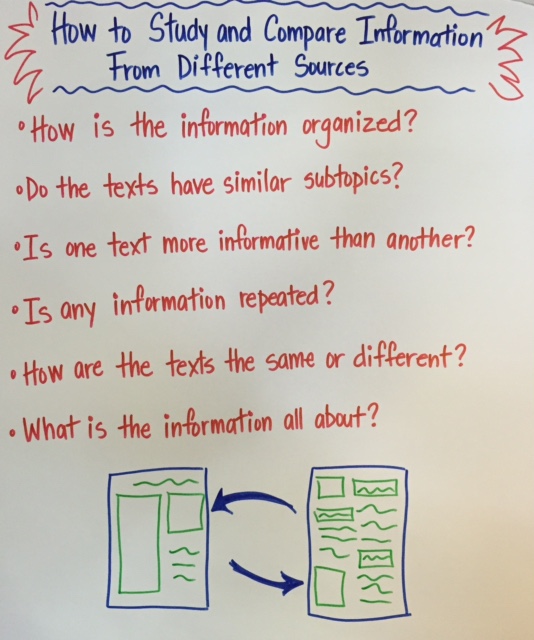 How to Study and Compare Information
From Different Sources
• How is the information organized?
• Do the texts have similar subtopics?
• Is one text more informative than another?
• Is any information repeated?
• How are the texts the same or different?
• What is the information all about?